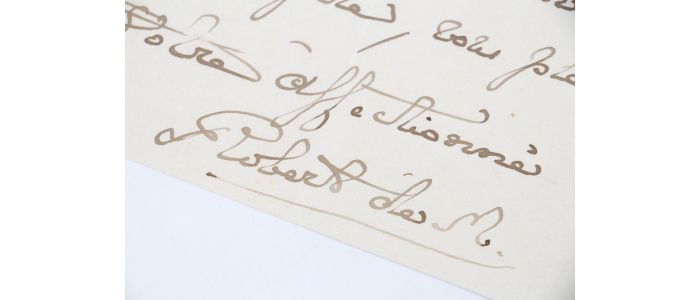 vous
Votre affectionné
Robert de M.